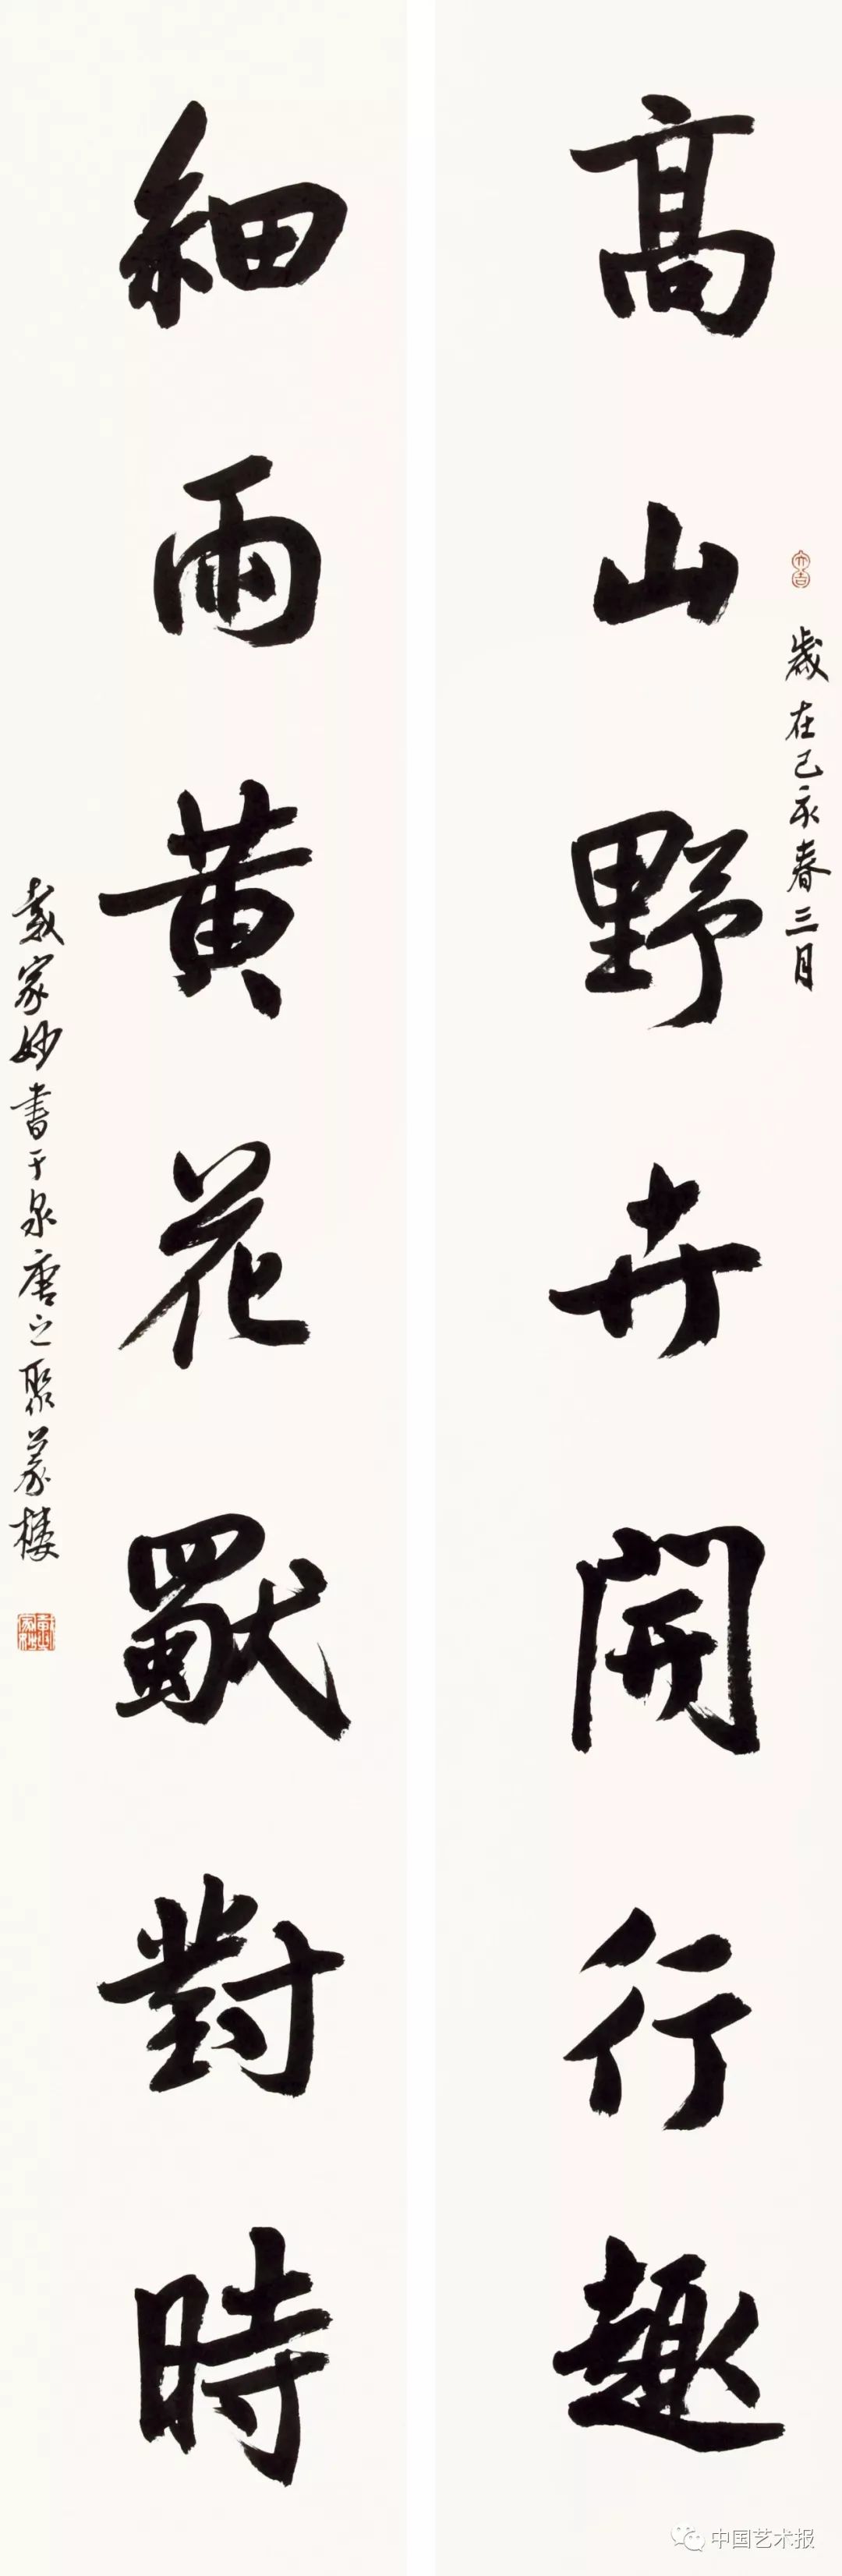 髙山野卉開行趣
大吉
歲在己亥春三月
細雨黄花獨對時
戴家妙書于泉唐之聚樓
中国艺术报